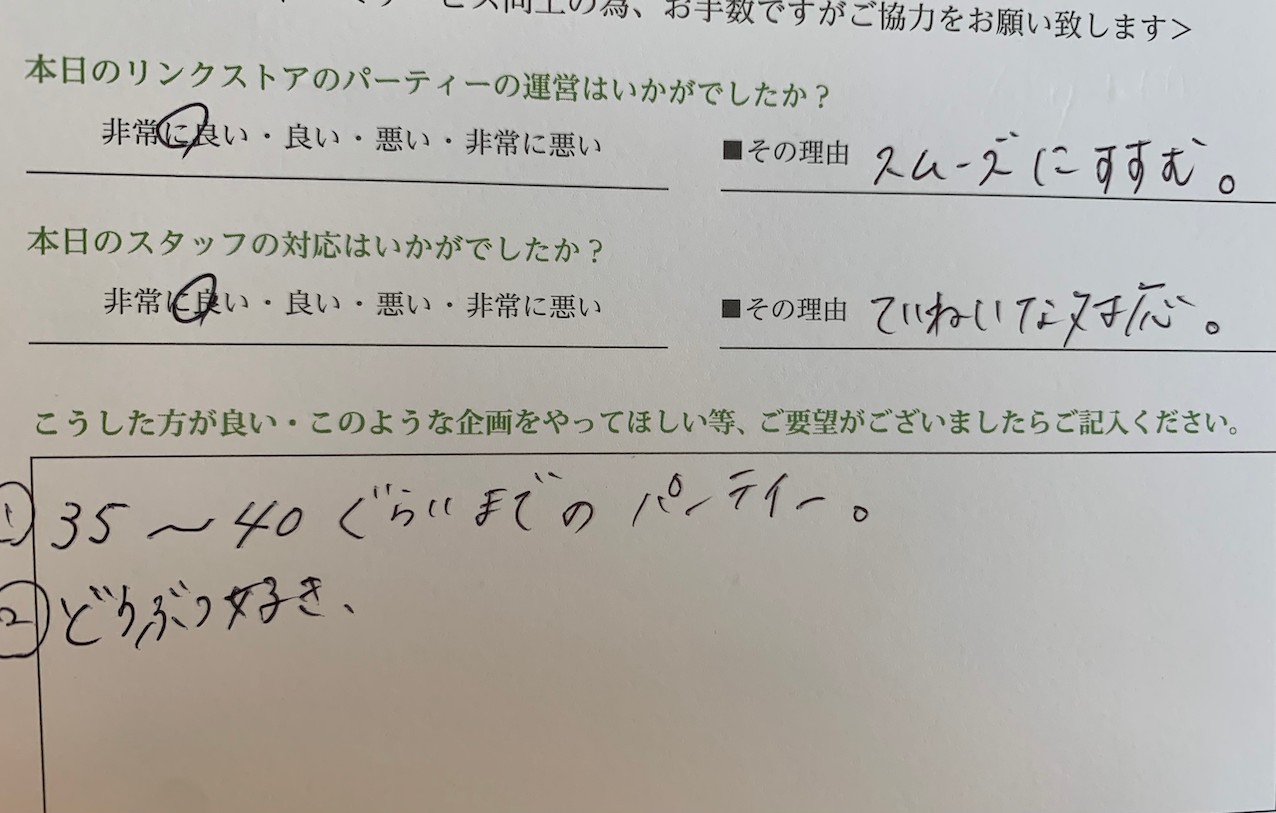 上の為、お手数ですがご協力をお願い致します>
本日のリンクストアのパーティーの運営はいかがでしたか?
非常に良い・良い・悪い・非常に悪い ■その理由 スムーズにすすむ。
本日のスタッフの対応はいかがでしたか?
非常に良い・良い・悪い・非常に悪い ■その理由 ていねいな対応。
こうした方が良い・このような企画をやってほしい等、ご要望がございましたらご記入ください。
① 35〜40ぐらいまでのパーティー。
② どうぶつ好き、